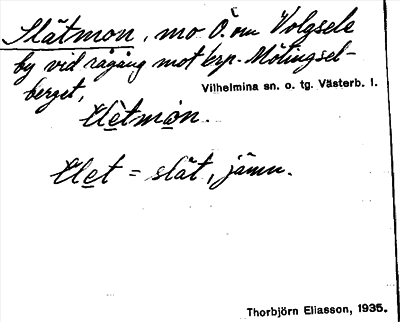 Slätmon, mo O. om Volgsele
by vid rågång mot krp. Mötingsel-
berget,
Vilhelmina sn. o. tg. Västerb. l.
= slät, jämn.
Thorbjörn Eliasson, 1935.